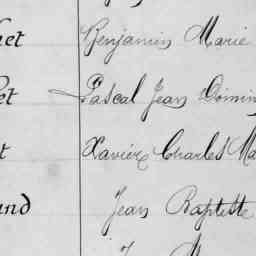 het Benjamin Marie
et Pascal Jean Domin
t Xavier Charles Ma
and Jean Baptiste